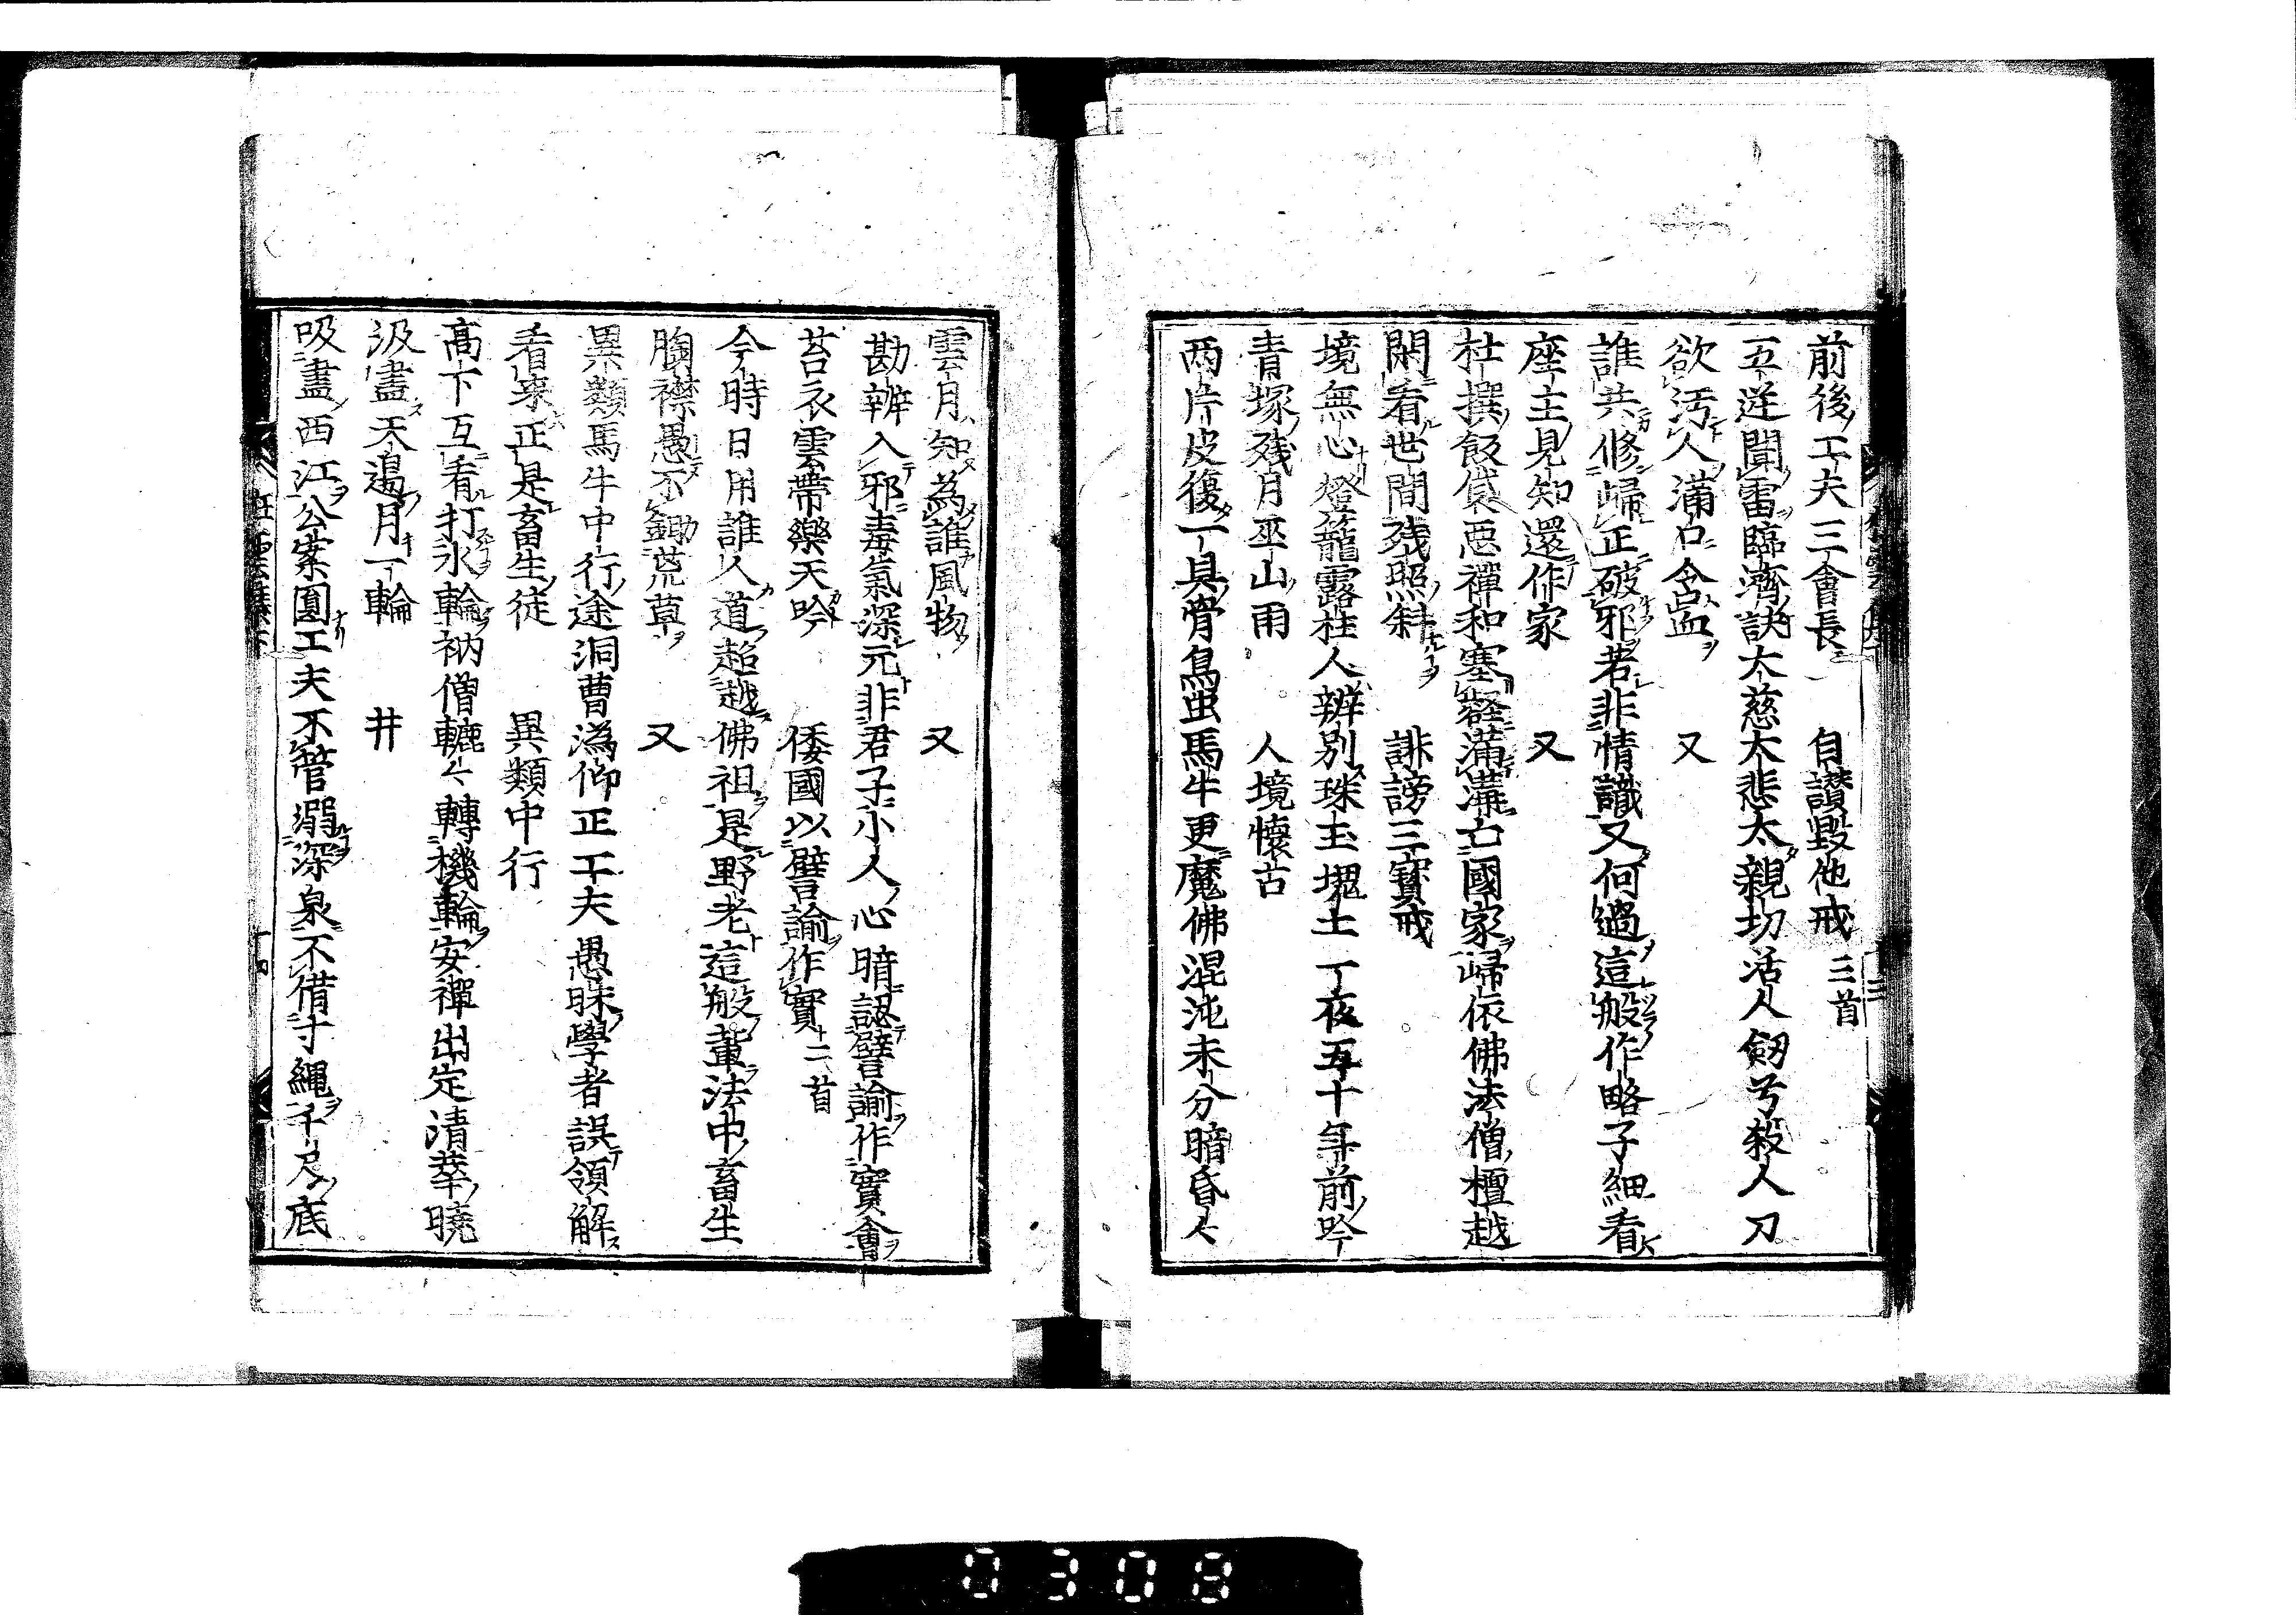 前後工夫三會長　自讃毀他戒 三首
五逆聞雷臨濟訣太慈太悲太親切活人劔兮殺人刀
欲汚人滿口含血　又
誰共修歸正破邪若非情識又何過這般作略子細看
座主見知還作家　又
杜撰飯袋惡禪和塞壑滿溝亡國家歸依佛法僧檀越
閑看世間殘照斜　誹謗三寳戒
境無心燈籠露柱人辨別珠玉塊土一夜五十年前吟
青塚殘月巫山雨　人境懷古
两片皮復一具骨鳥虫馬牛更魔佛混沌未分暗昏々
雲月知為誰風物　又
勘辨入邪毒氣深元非君子小人心暗認譬諭作實會
苔衣雲帶樂天吟　倭國以譬諭作實 二首
今時日用誰人道超越佛祖是野老這般輩法中畜生
胸襟愚不鋤荒草　又
異類馬牛中行途洞曹溈仰正工夫愚昧學者誤領解
看來正是畜生徒　異類中行
高下互看打氷輪衲僧轆々轉機輪安禪出定清華曉
汲盡天邉月一輪　井
吸盡西江公案圓工夫不管溺深泉不借寸繩千尺底
狂雲集下
十四
0308